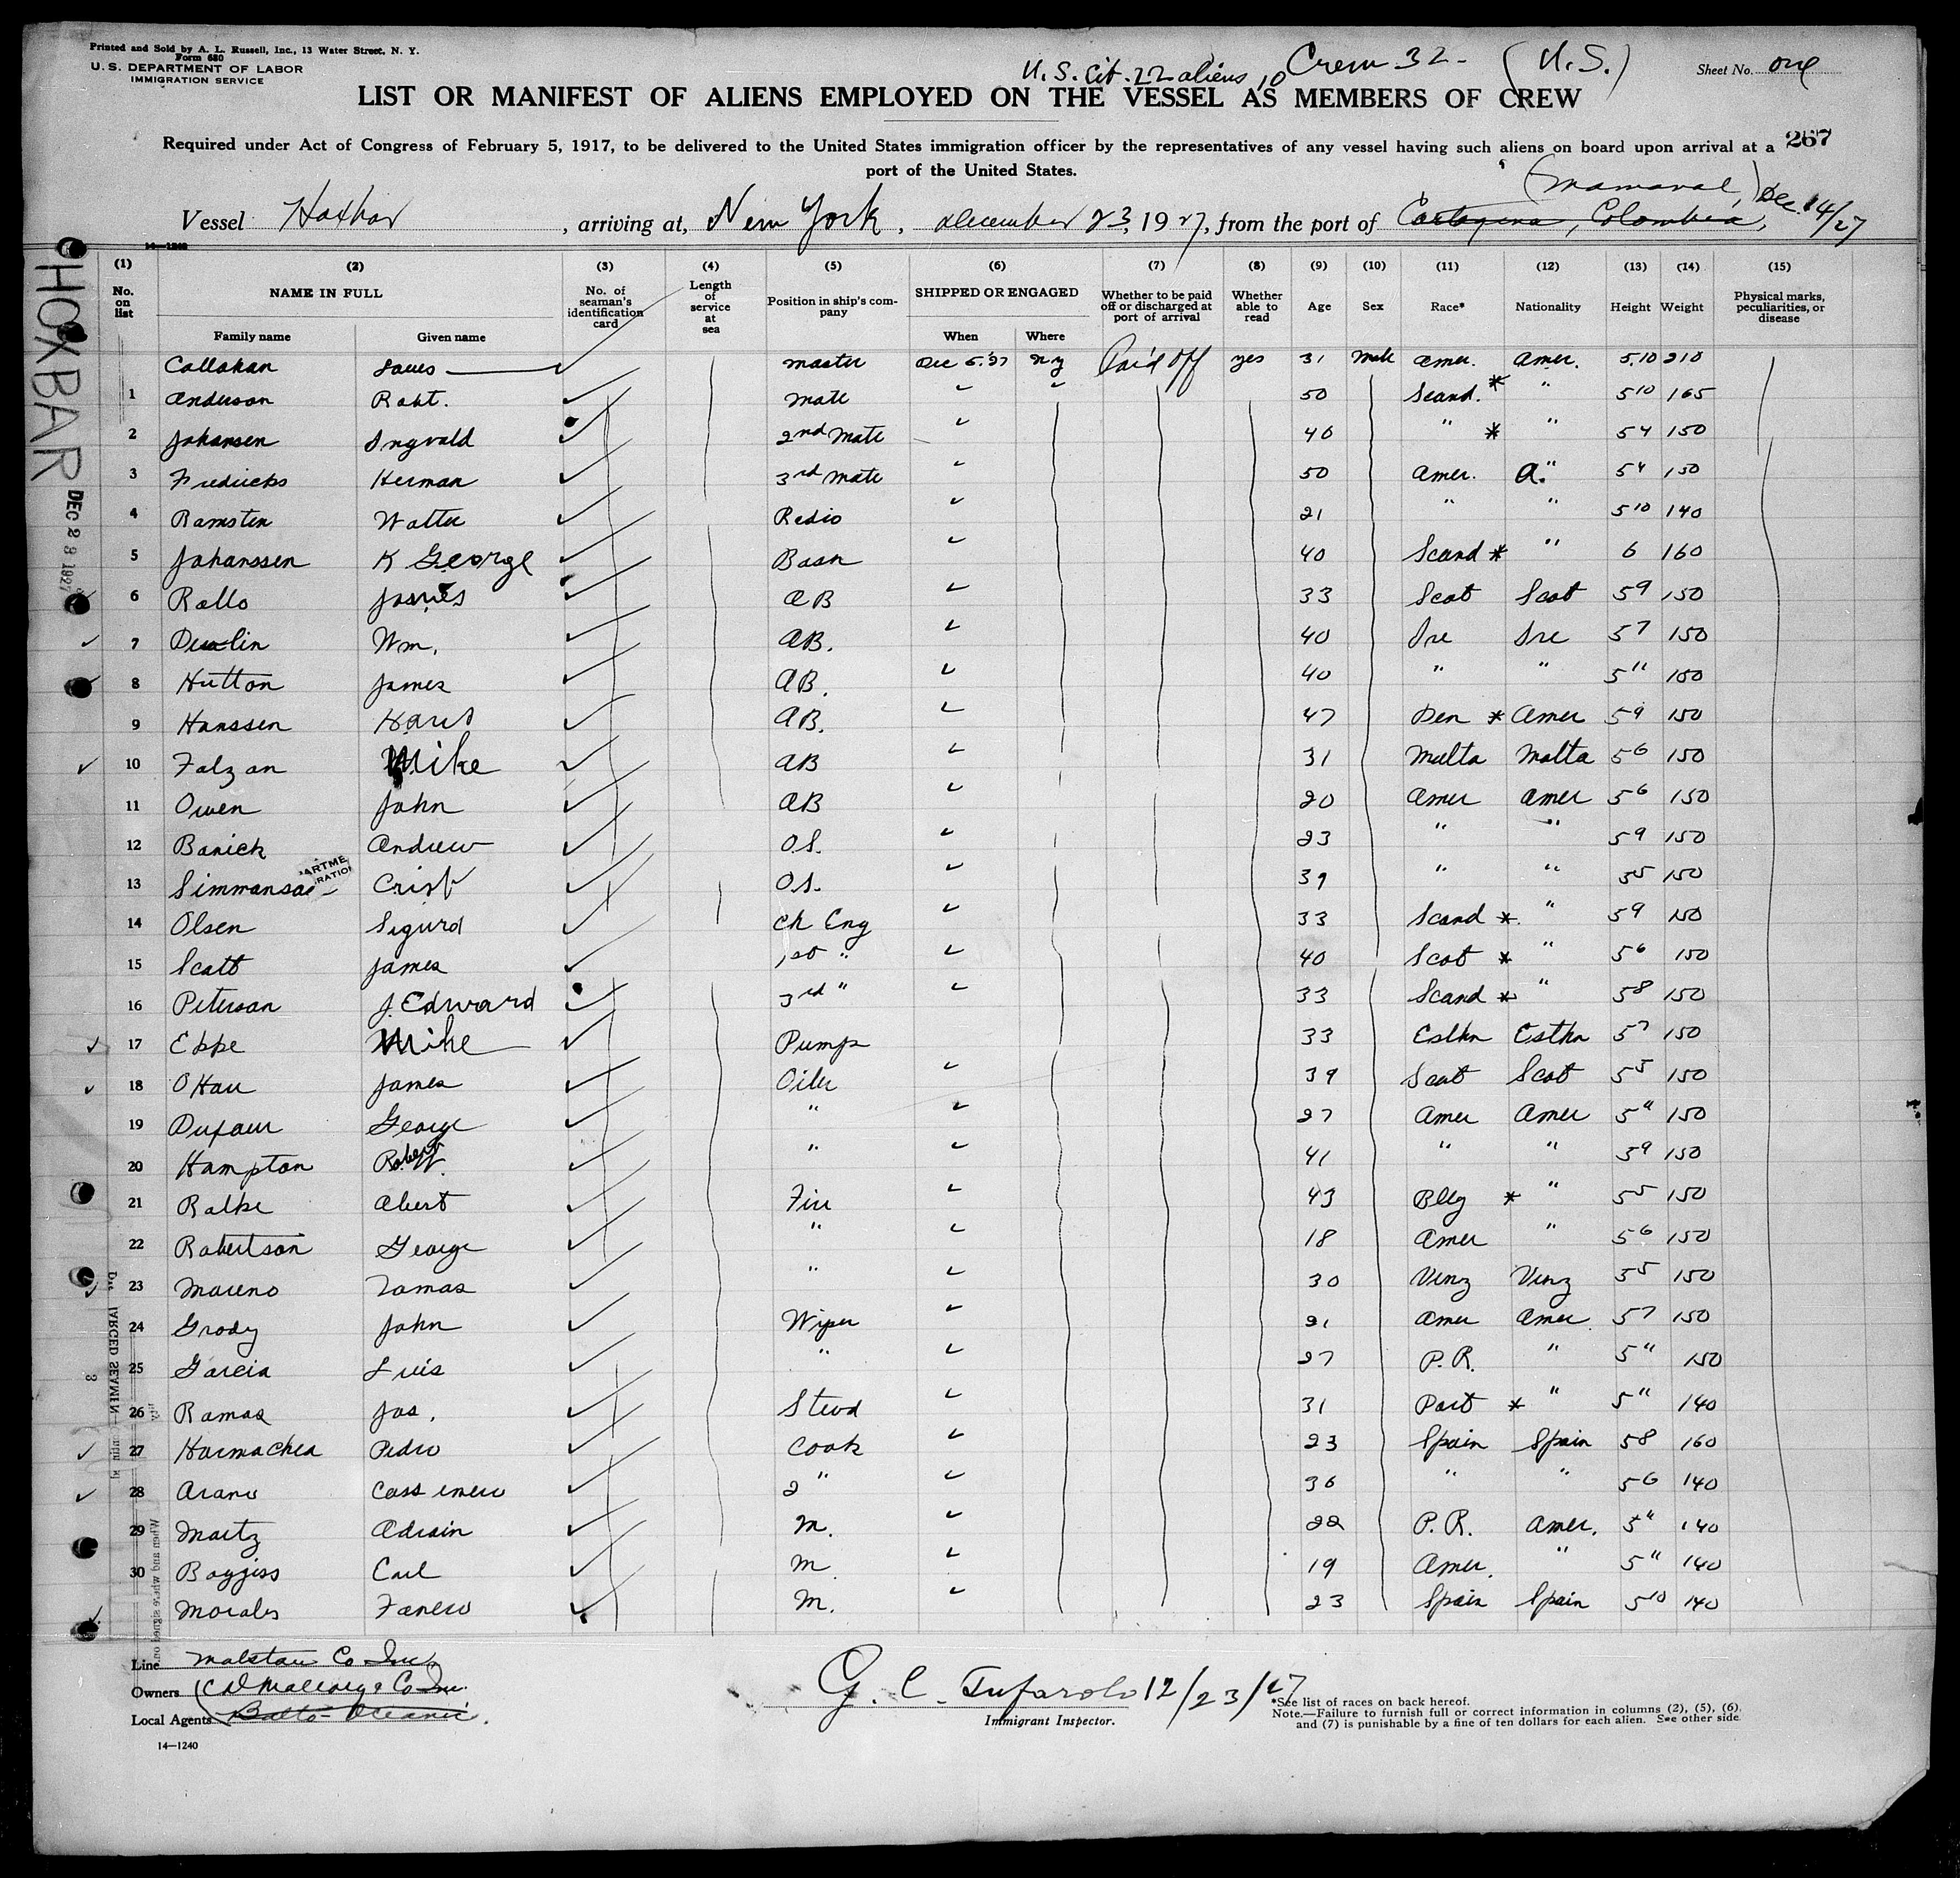 Printed and Sold by A. L. Russell, Inc., 13 Water Street, N. Y.
Form 680
U. S. DEPARTMENT OF LABOR
IMMIGRATION SERVICE
U.S. Cit. 22 aliens 10 Crew 32- (U.S.)
Sheet No. one
LIST OR MANIFEST OF ALIENS EMPLOYED ON THE VESSEL AS MEMBERS OF CREW
267
Required under Act of Congress of February 5, 1917, to be delivered to the United States immigration officer by the representatives of any vessel having such aliens on board upon arrival at a
port of the United States.
(Mamonal,) Dec. 14/27
Vessel Hoxbar, arriving at, New York, December 23, 1927, from the port of Cartagena, Colombia,
14—1240
HOXBAR
DEC 23 1927
(1) (2) (3) (4) (5) (6) (7) (8) (9) (10) (11) (12) (13) (14) (15)
No. on list NAME IN FULL No. of seaman's identification card Length of service at sea Position in ship's company SHIPPED OR ENGAGED Whether to be paid off or discharged at port of arrival Whether able to read Age Sex Race* Nationality Height Weight Physical marks, peculiarities, or disease
Family name Given name When Where
Callahan master Dec 5.27 NY Paid Off yes 31 Male Amer. Amer. 5.10 210
1 Anderson Robt. Mate 50 Scand. * " 5 10 165
2 Johansen Ingvald 2nd Mate 40 " * " 5 4 150
3 Fredericks Herman 3rd Mate 50 Amer. a." 5 4 150
4 Ramsten Walter Radio 21 " " 5 10 140
5 Johanssen K George Bosn 40 Scand * " 6 160
6 Rollo James AB 33 Scot Scot 5 9 150
7 Devlin Wm. AB. 40 Ire Ire 5 7 150
8 Hutton James AB. 40 " " 5 11 150
9 Hanssen Hans AB. 47 Den * Amer 5 9 150
10 Falzan Mike AB 31 Malta Malta 5 6 150
11 Owen John AB 20 Amer Amer 5 6 150
12 Banick Andrew O.S. 23 " " 5 9 150
13 Crisp O.S. 39 " " 5 5 150
14 Olsen Sigurd Ch Eng 33 Scand * " 5 9 150
15 Scott James 1st " 40 Scot * " 5 6 150
16 Peterson J. Edward 3rd " 33 Scand * " 5 8 150
17 Eppe Mike Pump 33 Esthn Esthn 5 7 150
18 OHare James Oiler 39 Scot Scot 5 5 150
19 Dufour George " 27 Amer Amer 5 11 150
20 Hampton Robert W. " 41 " " 5 9 150
21 Ralke Abert Fire 43 Blg * " 5 5 150
22 Robertson George " 18 Amer " 5 6 150
23 Moreno Tomas " 30 Venz Venz 5 5 150
24 Grody John Wiper 21 Amer Amer 5 7 150
25 Garcia Luis " 27 P.R. " 5 11 150
26 Ramos Jos. Stwd 31 Port * " 5 11 140
27 Hormachea Pedro Cook 23 Spain Spain 5 8 160
28 Arano Cassimero 2 " 36 " " 5 6 140
29 Martz Adrain M. 22 P.R. Amer. 5 11 140
30 Boggiss Carl M. 19 Amer. " 5 11 140
Morales M. 23 Spain Spain 5 10 140
Line Malstan Co Inc.
Owners (C D Mallory & Co Inc.
Local Agents Balto-Oceanic.
G. C. Tufarolo 12/23/27
Immigrant Inspector.
*See list of races on back hereof.
Note.—Failure to furnish full or correct information in columns (2), (5), (6),
and (7) is punishable by a fine of ten dollars for each alien. See other side.
14—1240